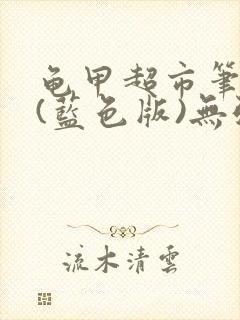 龜甲超市筆
(藍色版)無
流木清雲